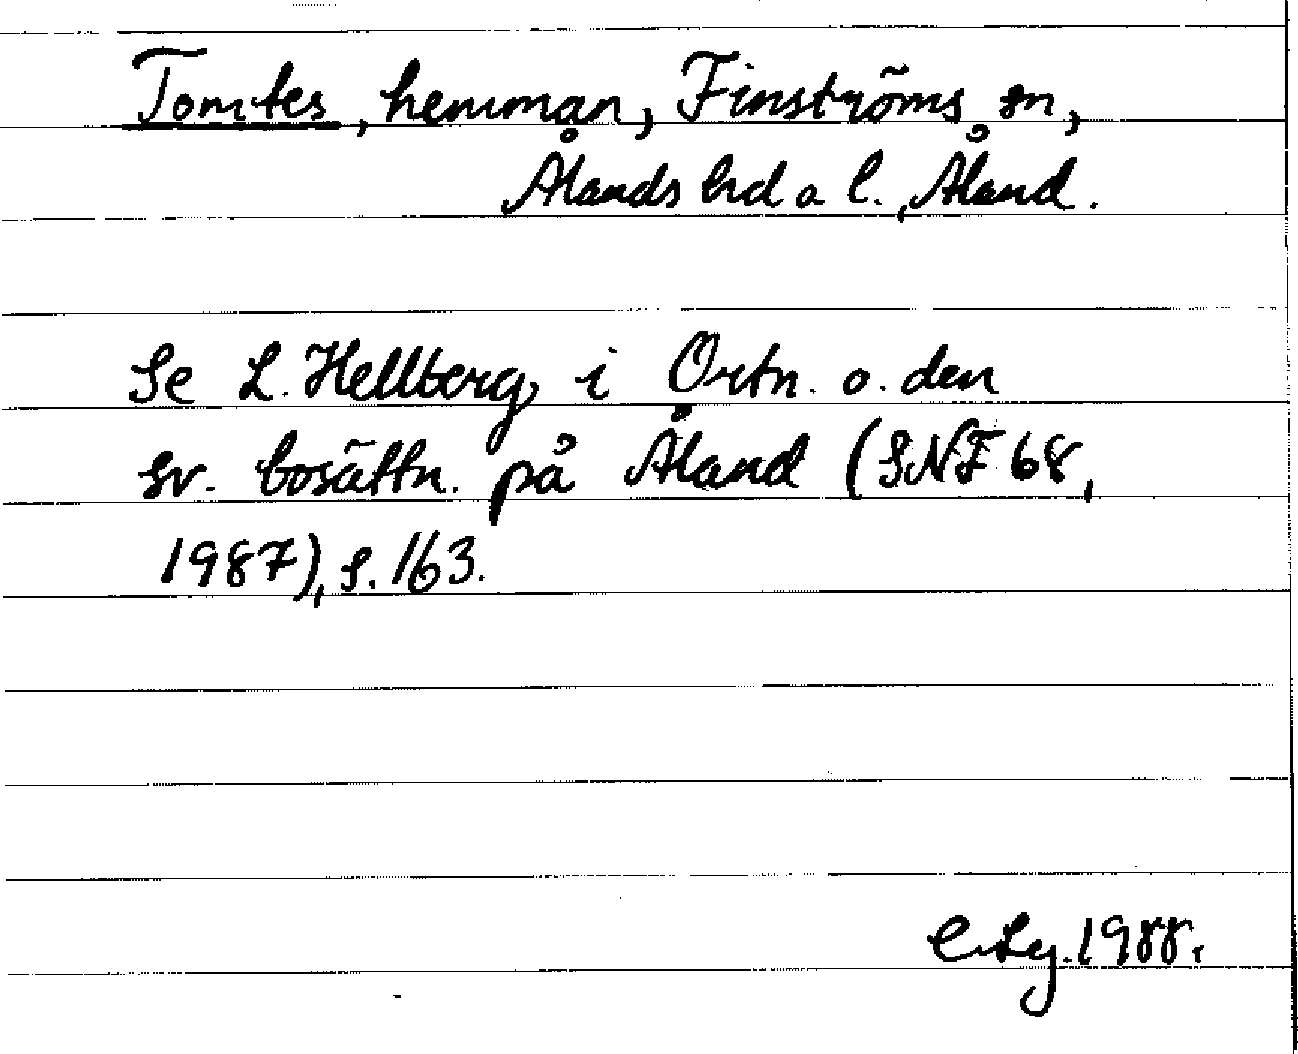 Tomtes, hemman, Finströms sn,
Ålands hd o l., Åland.
Se L. Hellberg i Ortn. o. den
sv. bosättn. på Åland (SNF 68,
1987), s. 163.
1988.